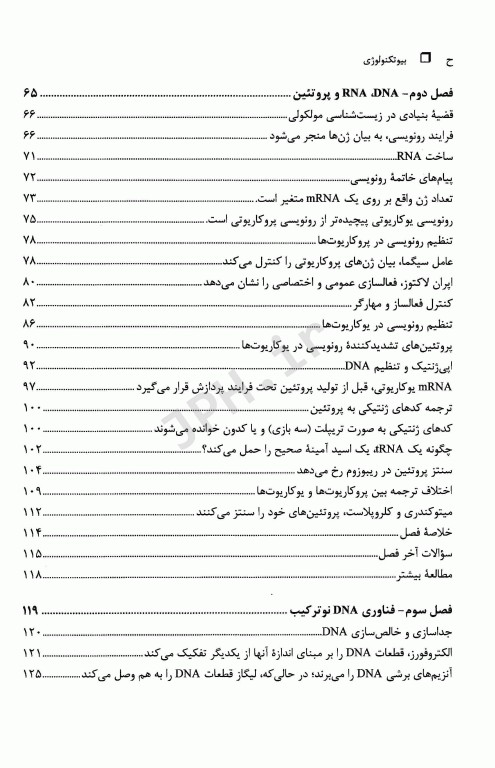 ح □ بیوتکنولوژی
فصل دوم- DNA، RNA و پروتئین ........ ۶۵
قضیۀ بنیادی در زیست‌شناسی مولکولی ........ ۶۶
فرایند رونویسی، به بیان ژن‌ها منجر می‌شود ........ ۶۶
ساخت RNA ........ ۷۱
پیام‌های خاتمۀ رونویسی ........ ۷۲
تعداد ژن واقع بر روی یک mRNA متغیر است. ........ ۷۳
رونویسی یوکاریوتی پیچیده‌تر از رونویسی پروکاریوتی است. ........ ۷۵
تنظیم رونویسی در پروکاریوت‌ها ........ ۷۸
عامل سیگما، بیان ژن‌های پروکاریوتی را کنترل می‌کند ........ ۷۸
اپران لاکتوز، فعالسازی عمومی و اختصاصی را نشان می‌دهد ........ ۸۰
کنترل فعالساز و مهارگر ........ ۸۲
تنظیم رونویسی در یوکاریوت‌ها ........ ۸۶
پروتئین‌های تشدیدکنندۀ رونویسی در یوکاریوت‌ها ........ ۹۰
اپی‌ژنتیک و تنظیم DNA ........ ۹۲
mRNA یوکاریوتی، قبل از تولید پروتئین تحت فرایند پردازش قرار می‌گیرد ........ ۹۷
ترجمه کدهای ژنتیکی به پروتئین ........ ۱۰۰
کدهای ژنتیکی به صورت تریپلت (سه بازی) و یا کدون خوانده می‌شوند ........ ۱۰۰
چگونه یک tRNA، یک اسید آمینۀ صحیح را حمل می‌کند؟ ........ ۱۰۲
سنتز پروتئین در ریبوزوم رخ می‌دهد ........ ۱۰۴
اختلاف ترجمه بین پروکاریوت‌ها و یوکاریوت‌ها ........ ۱۰۹
میتوکندری و کلروپلاست، پروتئین‌های خود را سنتز می‌کنند ........ ۱۱۲
خلاصۀ فصل ........ ۱۱۴
سؤالات آخر فصل ........ ۱۱۵
مطالعۀ بیشتر ........ ۱۱۸
فصل سوم- فناوری DNA نوترکیب ........ ۱۱۹
جداسازی و خالص‌سازی DNA ........ ۱۲۰
الکتروفورز، قطعات DNA را بر مبنای اندازۀ آنها از یکدیگر تفکیک می‌کند ........ ۱۲۱
آنزیم‌های برشی DNA را می‌برند؛ در حالی‌که، لیگاز قطعات DNA را به هم وصل می‌کند ........ ۱۲۵
JPH.ir